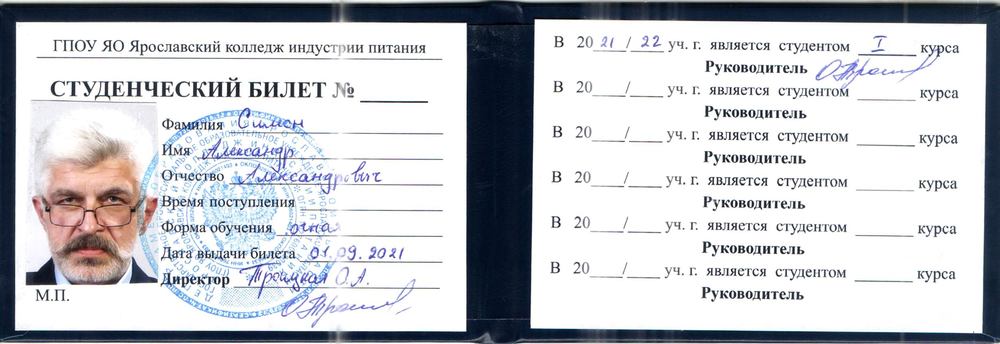 ГПОУ ЯО Ярославский колледж индустрии питания
СТУДЕНЧЕСКИЙ БИЛЕТ № ______
Фамилия Симон
Имя Александр
Отчество Александрович
Время поступления
Форма обучения очная
Дата выдачи билета 01.09.2021
Директор Троицкая О.А.
М.П.
В 2021/22 уч. г. является студентом I курса
Руководитель
В 20____/____уч. г. является студентом ______ курса
Руководитель
В 20____/____уч. г. является студентом ______ курса
Руководитель
В 20____/____уч. г. является студентом ______ курса
Руководитель
В 20____/____уч. г. является студентом ______ курса
Руководитель
В 20____/____уч. г. является студентом ______ курса
Руководитель